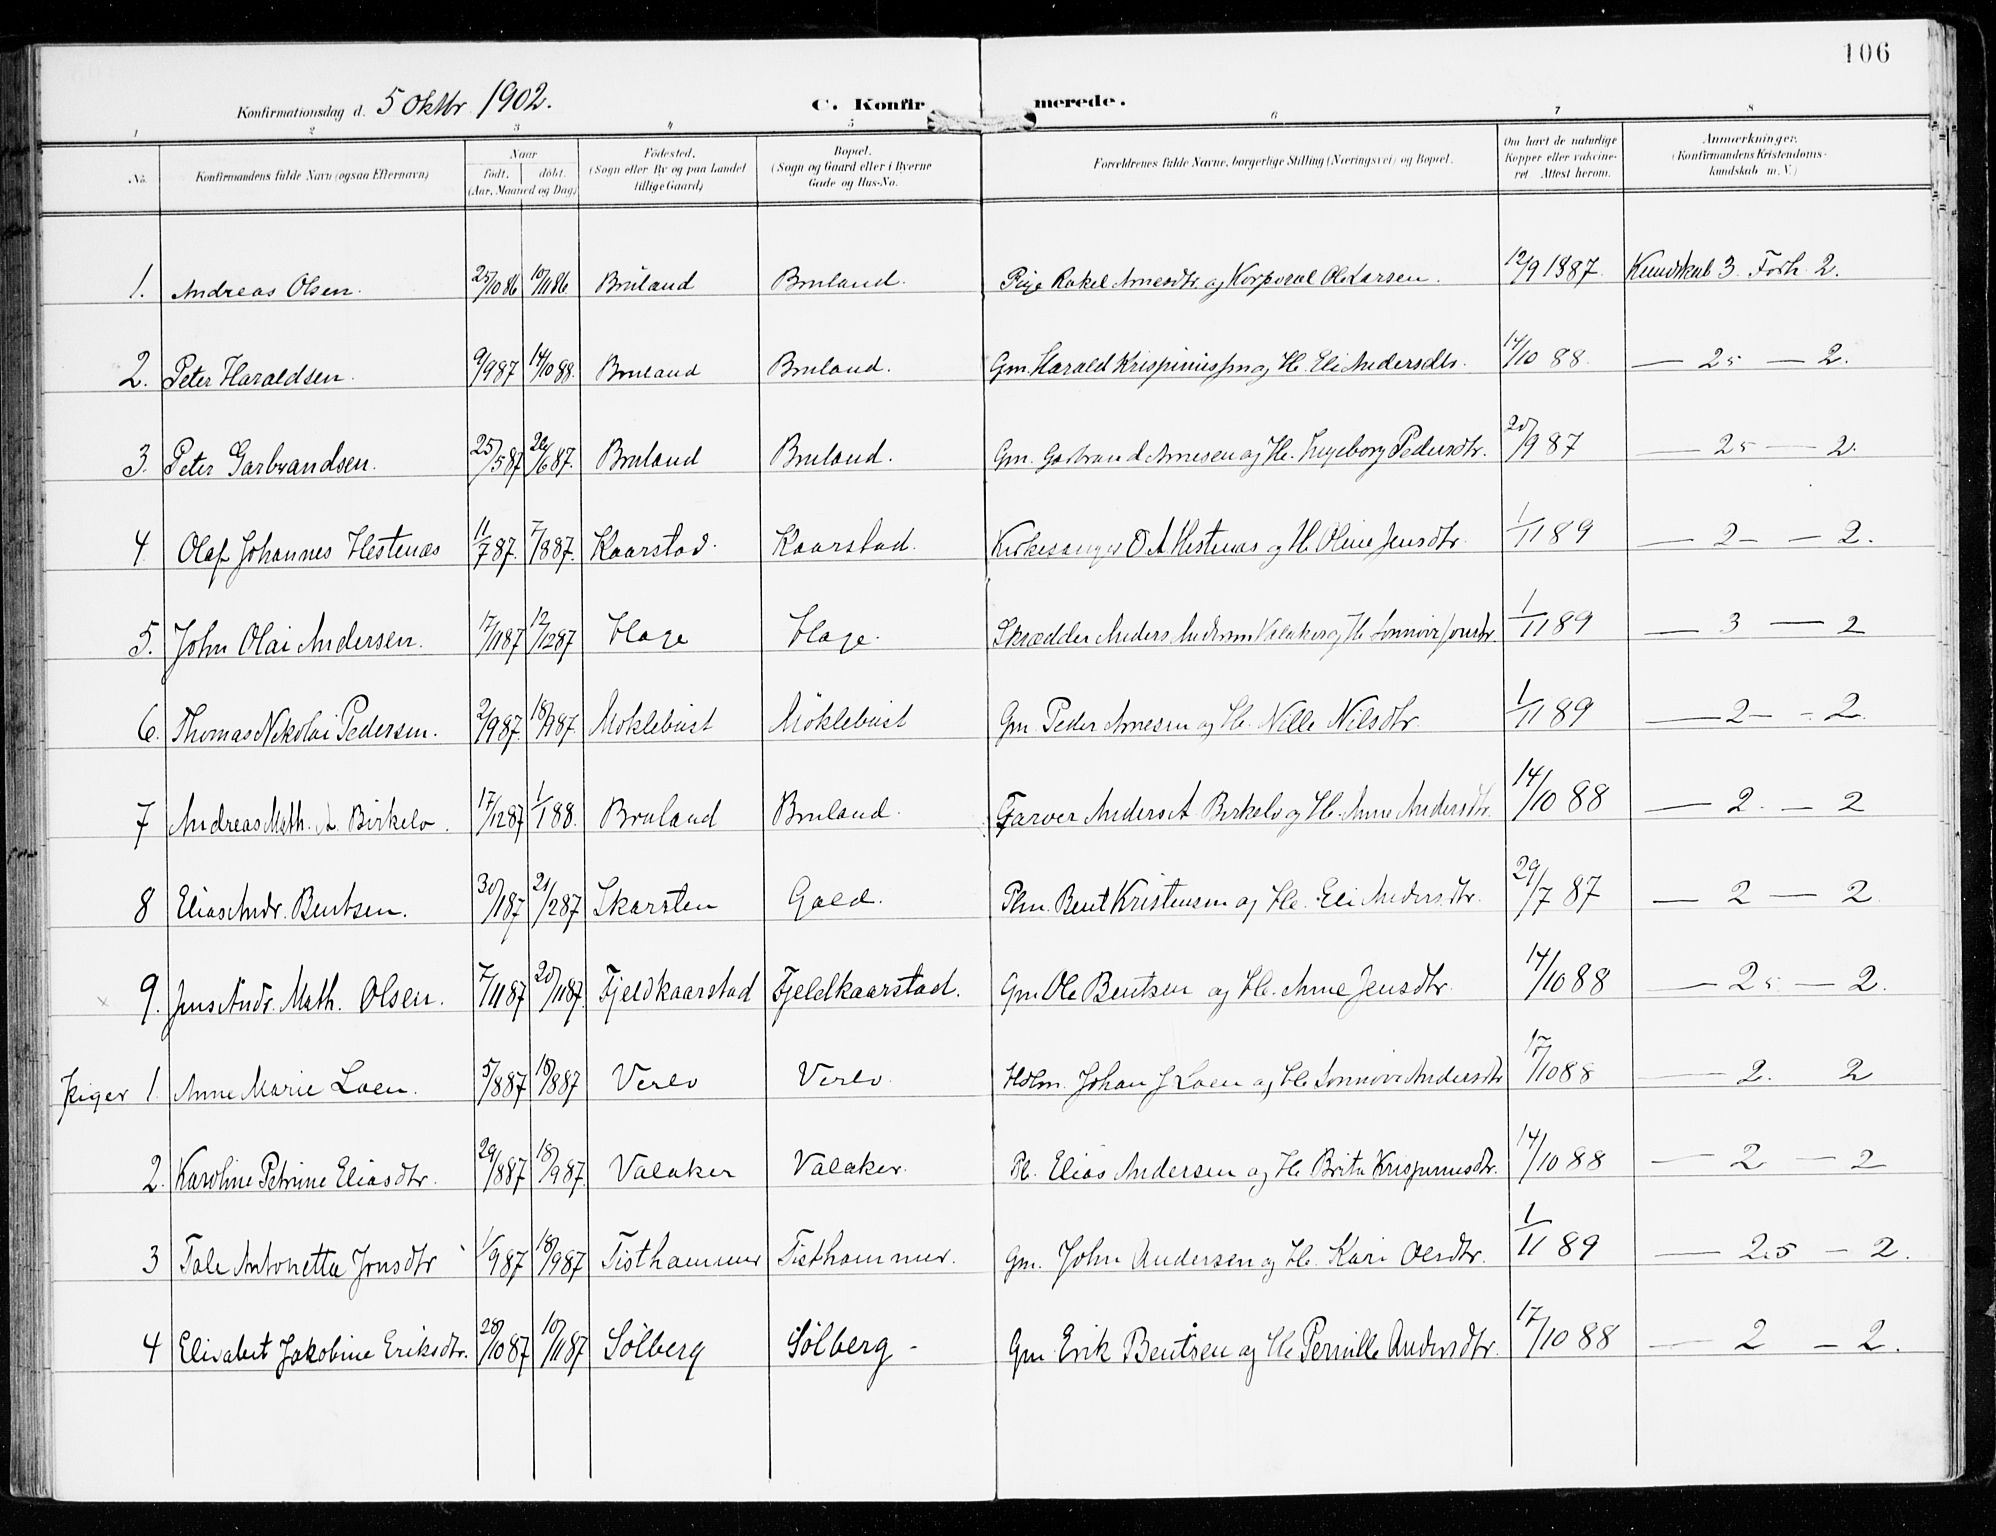 106
Konfirmationsdag d. 5 Oktbr 1902. C. Konfirmerede.
1 2 3 4 5 6 7 8
No. Konfirmandens fulde Navn (ogsaa Efternavn) Naar født. døbt. (Aar, Maaned og Dag) Fødested. (Sogn eller By og paa Landet tillige Gaard) Bopæl. (Sogn og Gaard eller i Byerne Gade og Hus-No. Forældrenes fulde Navne, borgerlige Stilling (Næringsvei) og Bopæl. Om havt de naturlige Kopper eller vakcineret Attest herom. Anmærkninger. (Konfirmandens Kristendomskundskab m. V.)
1. Andreas Olsen. 25/10 86 10/11 86 Bruland Bruland. Pige Rakel Arnesdtr. og Korporal Ole Larsen. 12/9 1887. Kundskab 3. Forh. 2.
2. Peter Haraldsen. 9/9 87 14/10 88. Bruland Bruland. Gm. Harald Krispinussen og H. Eli Andersdtr. 14/10 88. — 2.5 — 2.
3. Peter Garbrandsen. 25/5 87 26/6 87. Bruland Bruland. Gm. Garbrand Arnesen og H. Ingeborg Pedersdtr. 20/9 87 — 2.5 — 2.
4. Olaf Johannes Hestenæs 11/7 87. 7/8 87. Kaarstad. Kaarstad. Kirkesanger O A Hestenæs og H. Oline Jensdtr. 1/11 89 — 2 — 2.
5. John Olai Andersen. 17/11 87 12/12 87 Hage Hage. Skrædder Anders Andersen Valaker og H. Sønnøve Jonsdtr. 1/11 89 — 3 — 2
6. Thomas Nikolai Pedersen. 2/9 87. 18/9 87. Møklebust Møklebust Gm. Peder Arnesen og H. Nille Nilsdtr. 1/11 89 — 2 — 2.
7 Andreas Math. A. Birkelo. 17/12 87 1/1 88. Bruland Bruland. Farver Anders A Birkelo og H. Anne Andersdtr. 14/10 88 — 2. — 2
8 Elias Andr. Bentsen. 30/1 87 21/2 87 Skarsten Gald. Plm. Bent Kristensen og H. Eli Andersdtr. 29/7 87 — 2 — 2.
9. Jens Andr. Math. Olsen. 7/11 87 20/11 87. Fjeldkaarstad Fjeldkaarstad. Gm Ole Bentsen og H. Anne Jensdtr. 14/10 88 — 2.5 — 2.
Piger 1. Anne Marie Loen. 5/8 87 18/8 87 Verlo Verlo. Hdlm. Johan J Loen og H. Sønnøve Andersdtr 17/10 88 — 2. 2
2. Karoline Petrine Eliasdtr. 29/8 87 18/9 87. Valaker Valaker. Pl. Elias Andersen og H. Brita Krispinusdtr. 14/10 88 — 2 — 2
3 Tale Antonette Jonsdtr 1/9 87 18/9 87 Tisthammer Tisthammer. Gm. John Andersen og H. Kari Olsdtr. 1/11 89 — 2.5 — 2.
4 Elisabet Jakobine Eriksdtr. 28/10 87 10/11 87 Sølberg Sølberg - Gm. Erik Bentsen og H. Pernille Andersdtr. 17/10 88 — 2 — 2.